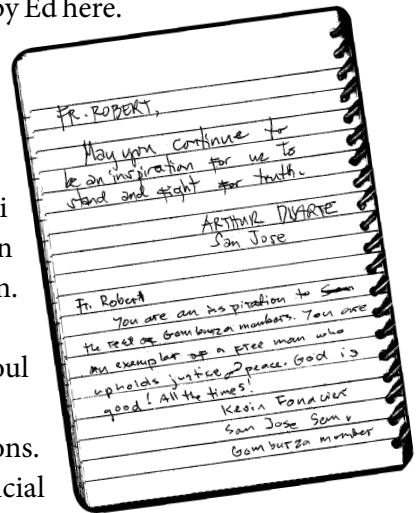 by Ed here.
FR. ROBERT,
May you continue to
be an inspiration for us to
stand and fight for truth.
ARTHUR DUARTE
San Jose
Fr. Robert
You are an inspiration to
the rest of Gomburza members. You are
an exemplar of a free man who
upholds justice & peace. God is
good! All the times!
Kevin
San Jose Sem.
Gomburza member
i
n
n.
oul
ons.
cial